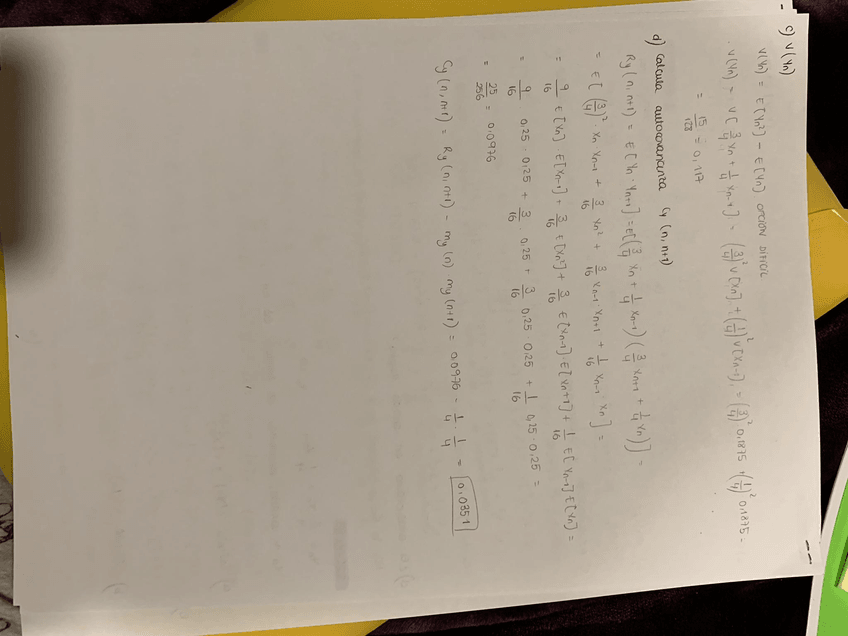 c) V(Yn)
V(Yn) = E[Yn²] - E[Yn] OPCIÓN DIFÍCIL
. V(Yn) = V[3/4 Xn + 1/4 Xn-1] = (3/4)² V[Xn] + (1/4)² V[Xn-1] = (3/4)² 0,1875 + (1/4)² 0,1875 =
= 15/128 = 0,117
d) Calcula autocovarianza Cy (n, n+1)
Ry (n, n+1) = E[Yn · Yn+1] = E[(3/4 Xn + 1/4 Xn-1) (3/4 Xn+1 + 1/4 Xn)] =
= E[(3/4)² Xn Xn+1 + 3/16 Xn² + 3/16 Xn-1 Xn+1 + 1/16 Xn-1 · Xn] =
= 9/16 E[Xn] E[Xn+1] + 3/16 E[Xn²] + 3/16 E[Xn-1] · E[Xn+1] + 1/16 E[Xn-1] E[Xn] =
= 9/16 0,25 · 0,25 + 3/16 · 0,25 + 3/16 0,25 · 0,25 + 1/16 0,25 · 0,25 =
= 25/256 = 0,0976
Cy (n, n+1) = Ry (n, n+1) - my (n) · my (n+1) = 0,0976 - 1/4 · 1/4 = 0,0351